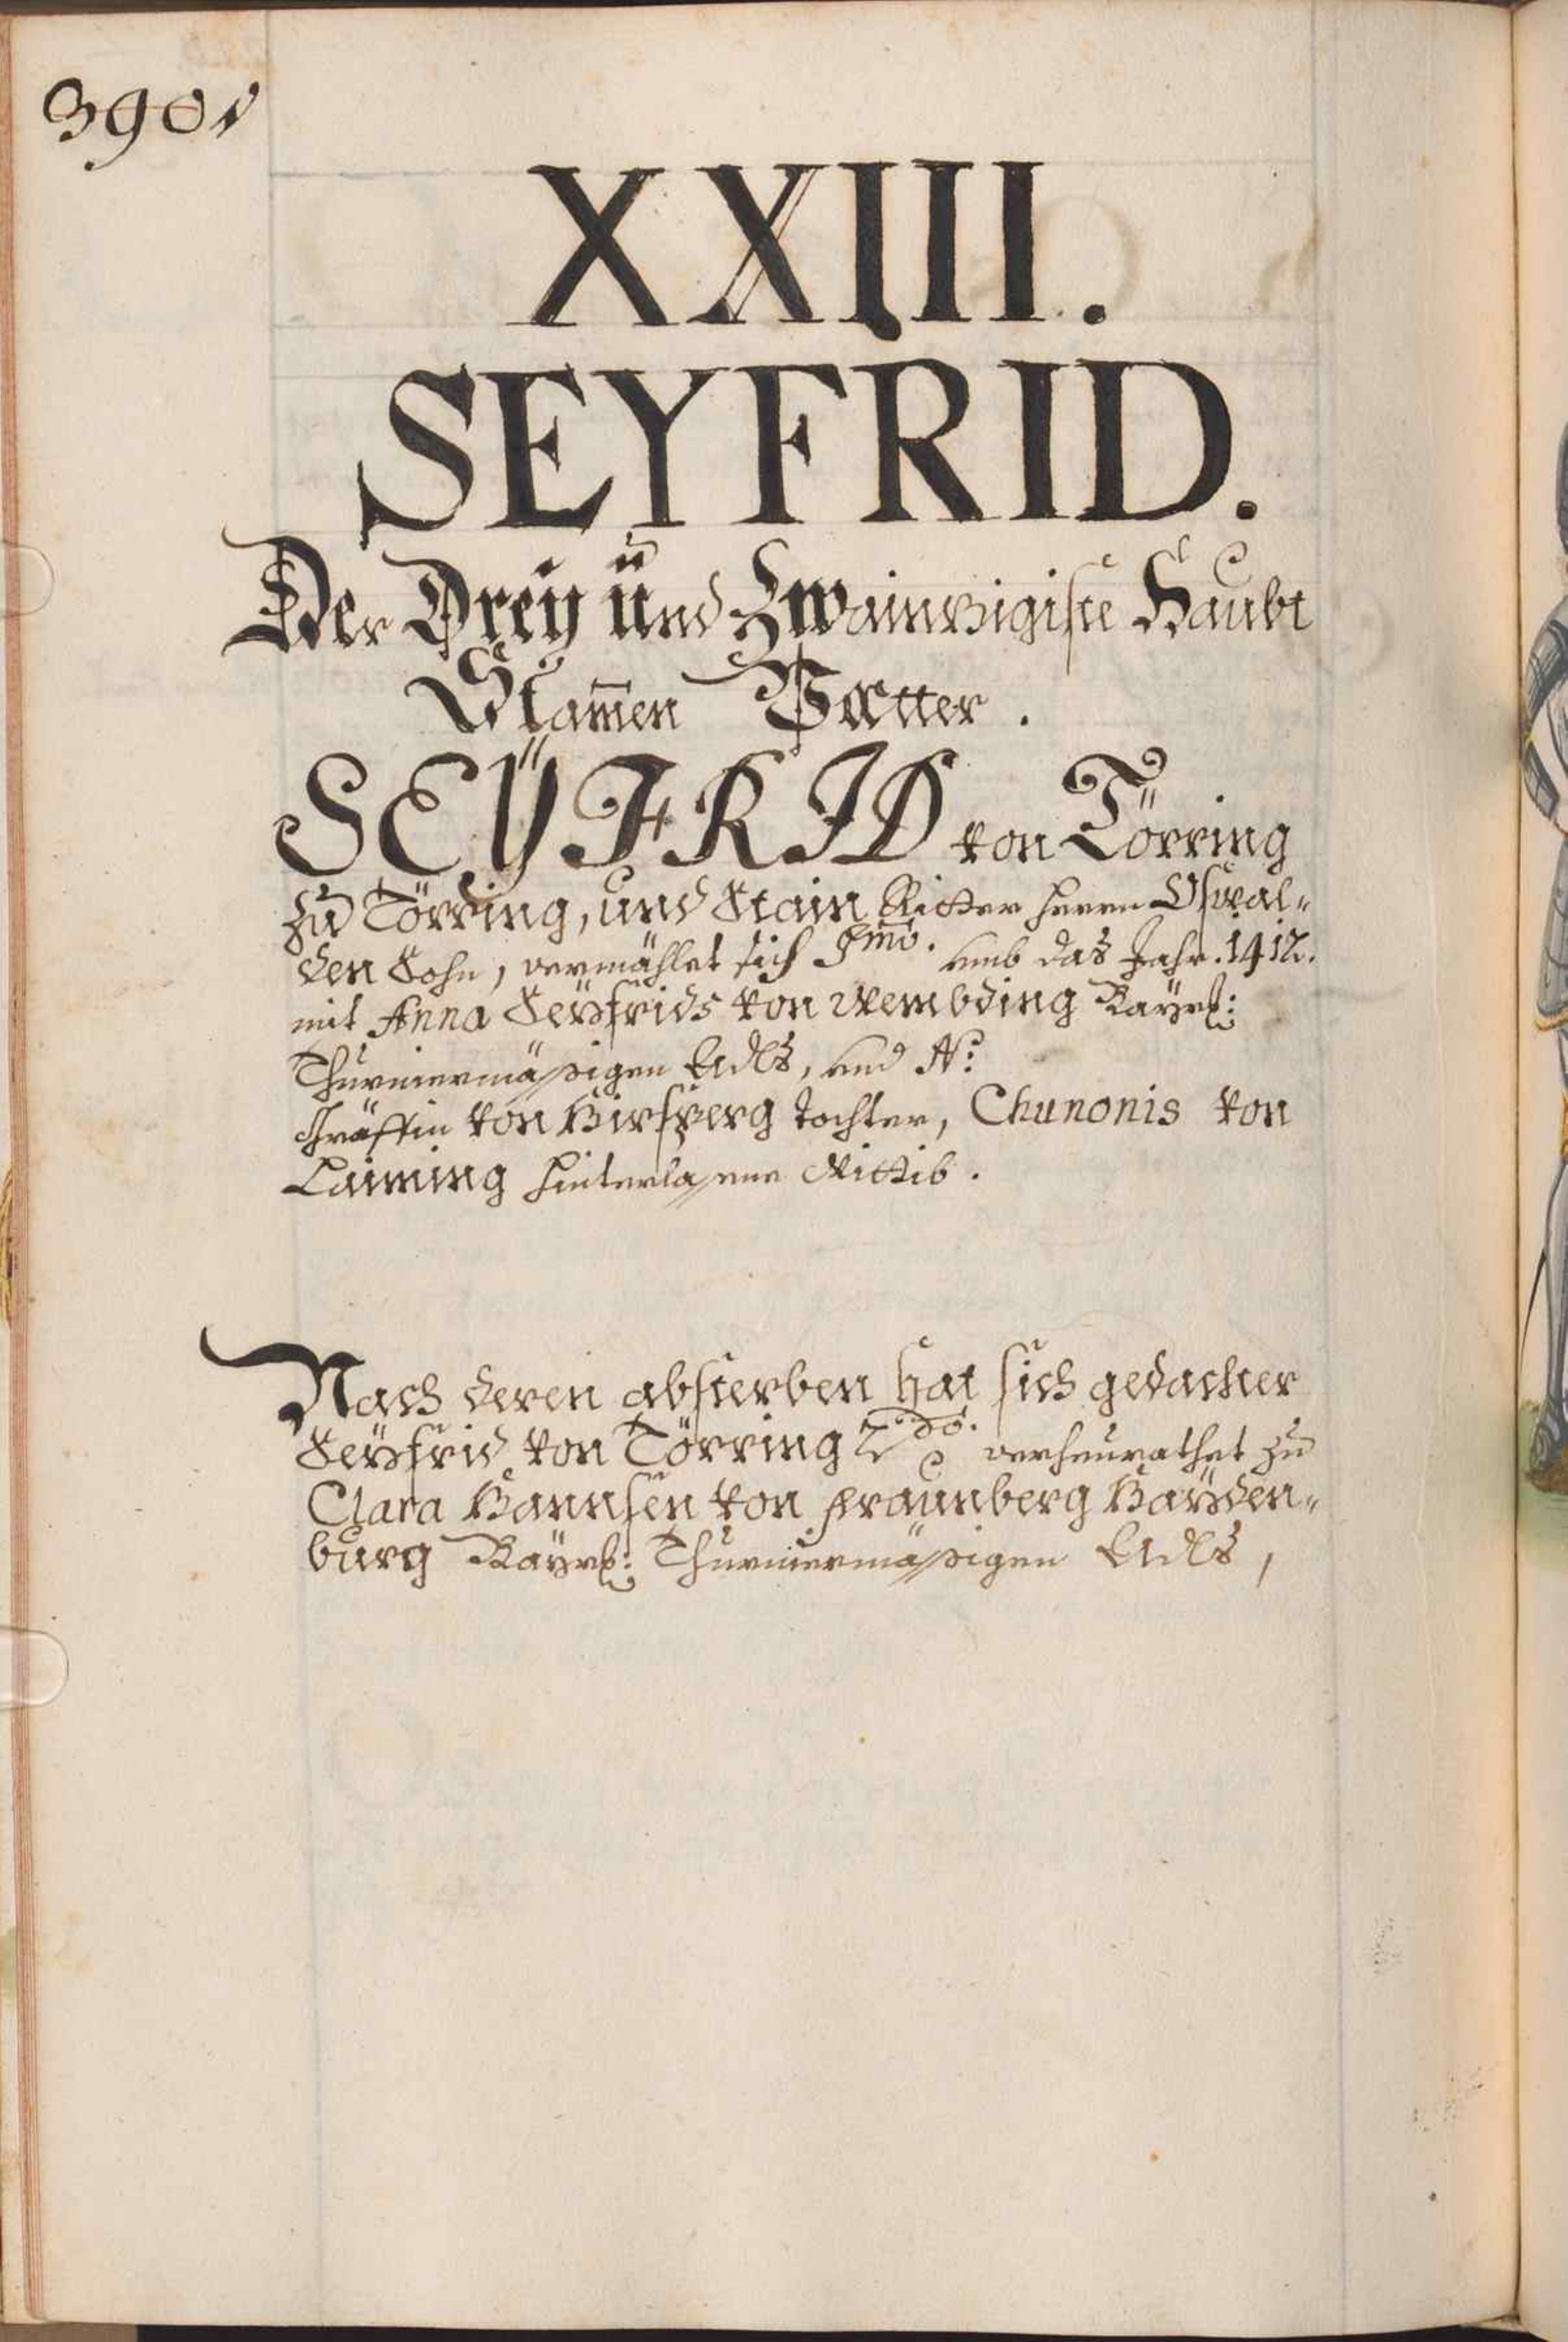 390v
XXIII.
SEYFRID.
Der Dreÿ und Zwainzigiste Haubt
Stam̄en Vatter.
SEŸFRID von Törring
zu Törring, und Stain Ritter Herrn Oswal-
den Sohn, vermählet sich Imo. umb das Jahr. 1412.
mit Anna Seyfrids von Wembding Bayrl:
Thurniermässigen Adls, und N:
Gräffin von Hirsperg tochter, Chunonis von
Laiming hinterlassene Wittib.
Nach deren absterben hat sich gedachter
Seyfrid von Törring 2do. verheurathet zu
Clara Hannsen von Fraunberg Hayden-
burg Bayrl: Thurniermässigen Adls,